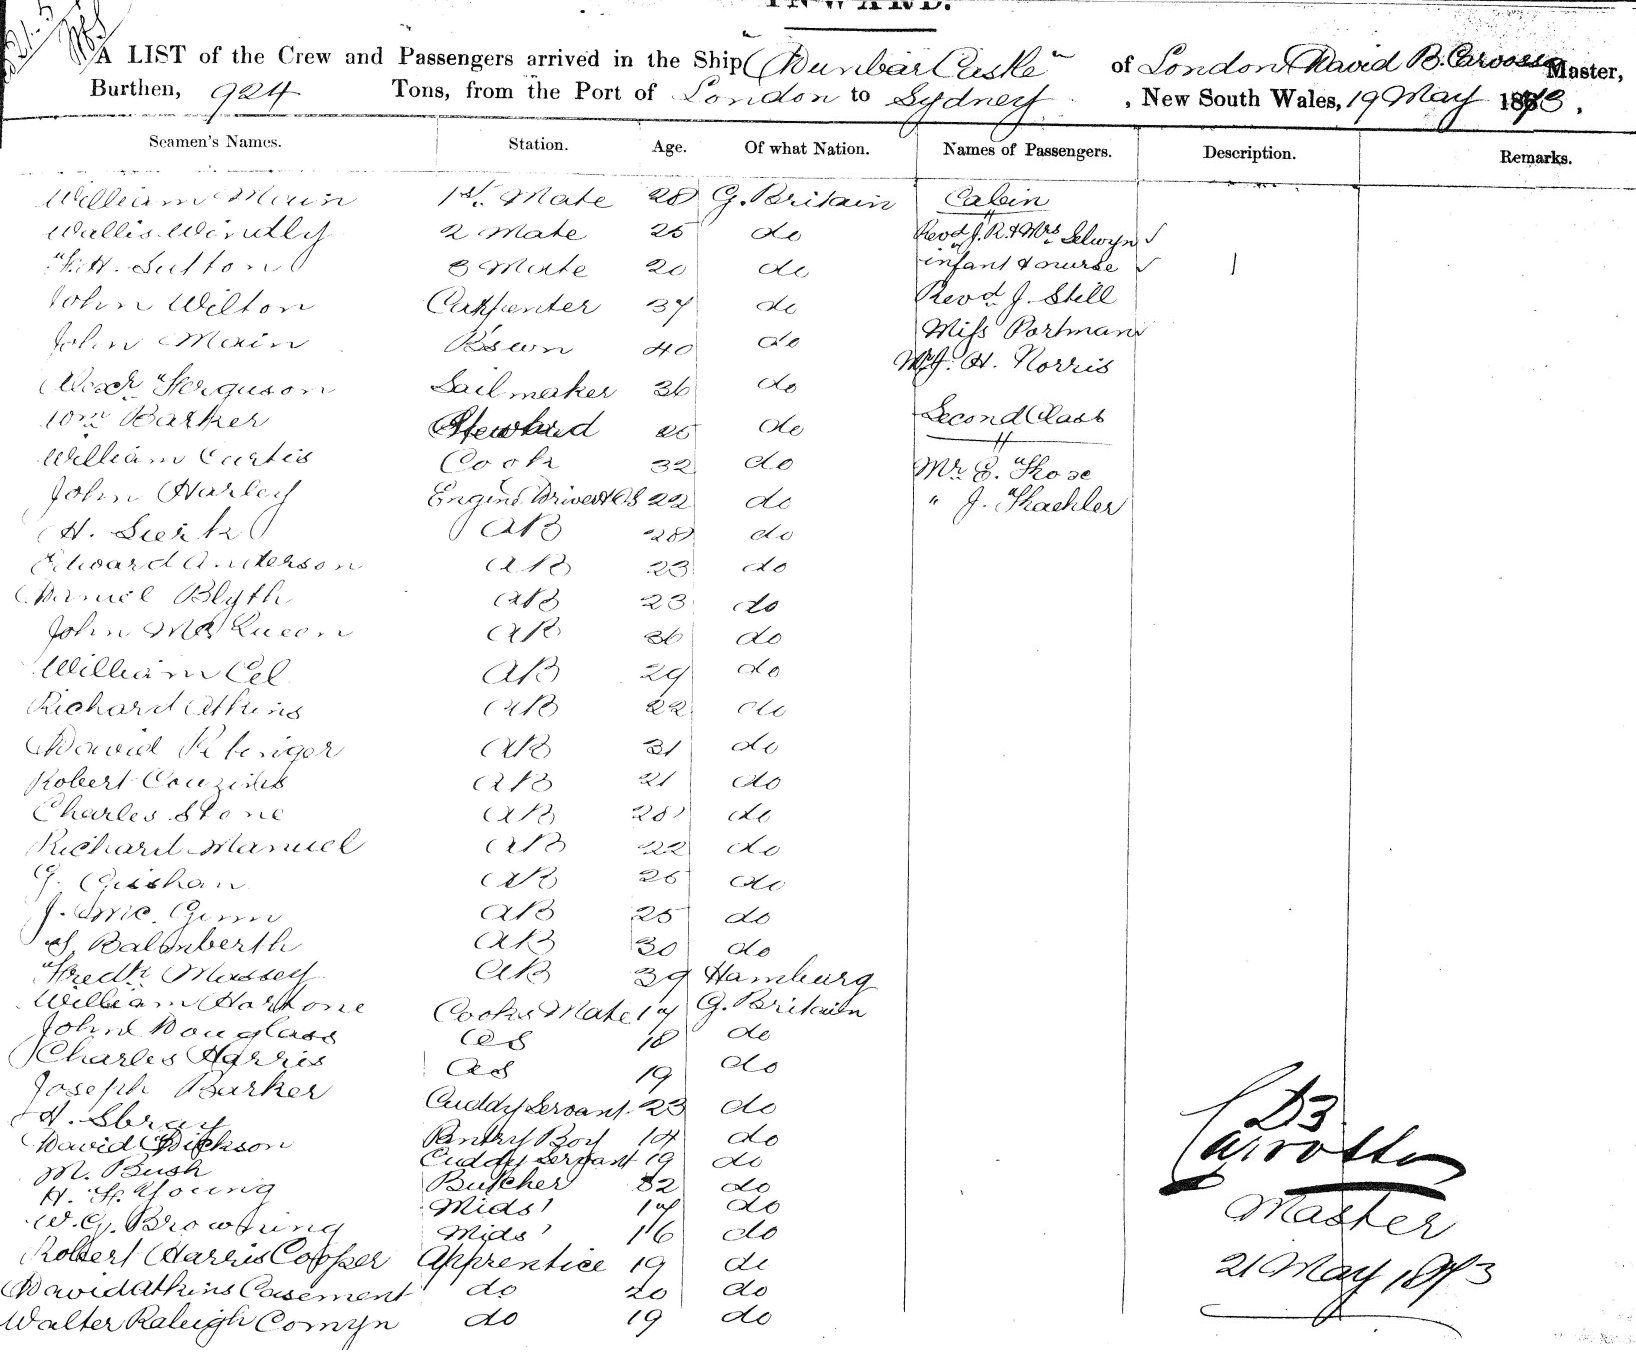 INWARD.
A LIST of the Crew and Passengers arrived in the Ship "Dunbar Castle" of London David B. Carvosso Master,
Burthen, 924 Tons, from the Port of London to Sydney, New South Wales, 19 May 1873.
Seamen's Names. Station. Age. Of what Nation. Names of Passengers. Description. Remarks.
William Main 1st. Mate 28 G. Britain Cabin
Wallis 2 Mate 25 do Revd J. R. & Mrs Selwyn
F. H. Sutton 3 Mate 20 do infant & nurse
John Wilton Carpenter 37 do Revd J. Still
John Main Bswn 40 do Miss Portman
Alexr Ferguson Sailmaker 36 do Mr J. H. Norris
Wm Barker Steward 25 do Second Class
William Curtis Cook 32 do Mr E.
John Harley Engine Driver & OS 22 do " J.
H. AB 28 do
Edward Anderson AB 23 do
Daniel Blyth AB 23 do
John McQueen AB 36 do
William AB 29 do
Richard Atkins AB 22 do
David AB 31 do
Robert Couzins AB 21 do
Charles Stone AB 28 do
Richard Manuel AB 22 do
G. AB 26 do
J. Mc. Ginn AB 25 do
AB 30 do
Fredk Massey AB 39 Hamburg
William Cooks Mate 17 G. Britain
John Douglass OS 18 do
Charles Harris OS 19 do
Joseph Barker Cuddy Servant 23 do
H. Pantry Boy 14 do
David Dickson Cuddy Servant 19 do
M. Bush Butcher 32 do
H. F. Young Mids' 17 do
W. G. Browning Mids' 16 do
Robert Harris Cooper Apprentice 19 do
David Atkins Casement do 20 do
Walter Raleigh Comyn do 19 do
DB
Carvosso
Master
21 May 1873